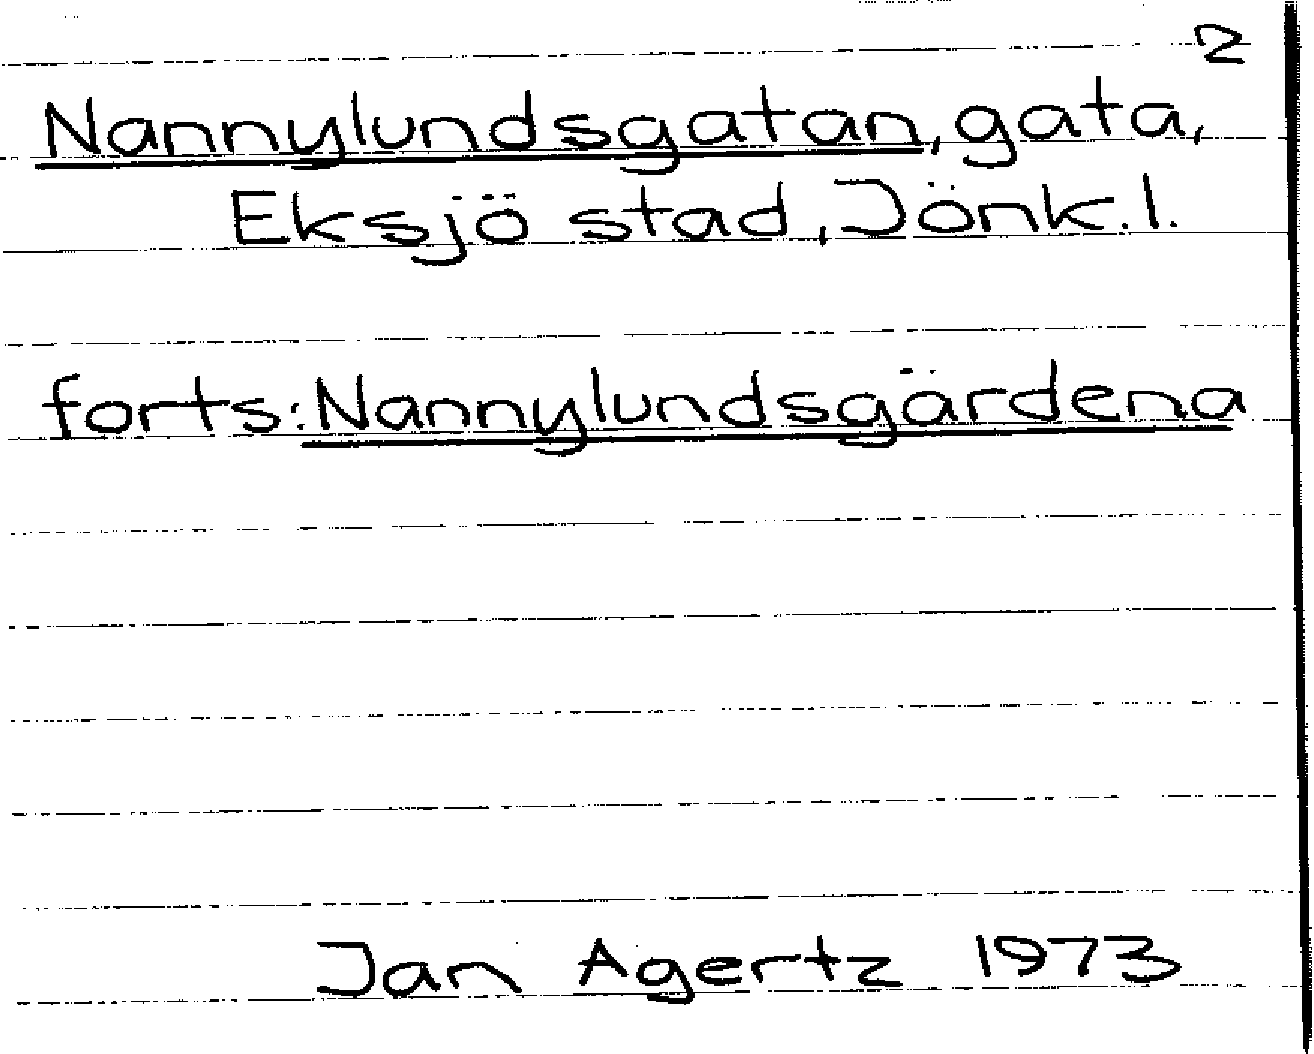 2
Nannylundsgatan, gata,
Eksjö stad, Jönk.l.
forts: Nannylundsgärdena
Jan Agertz 1973